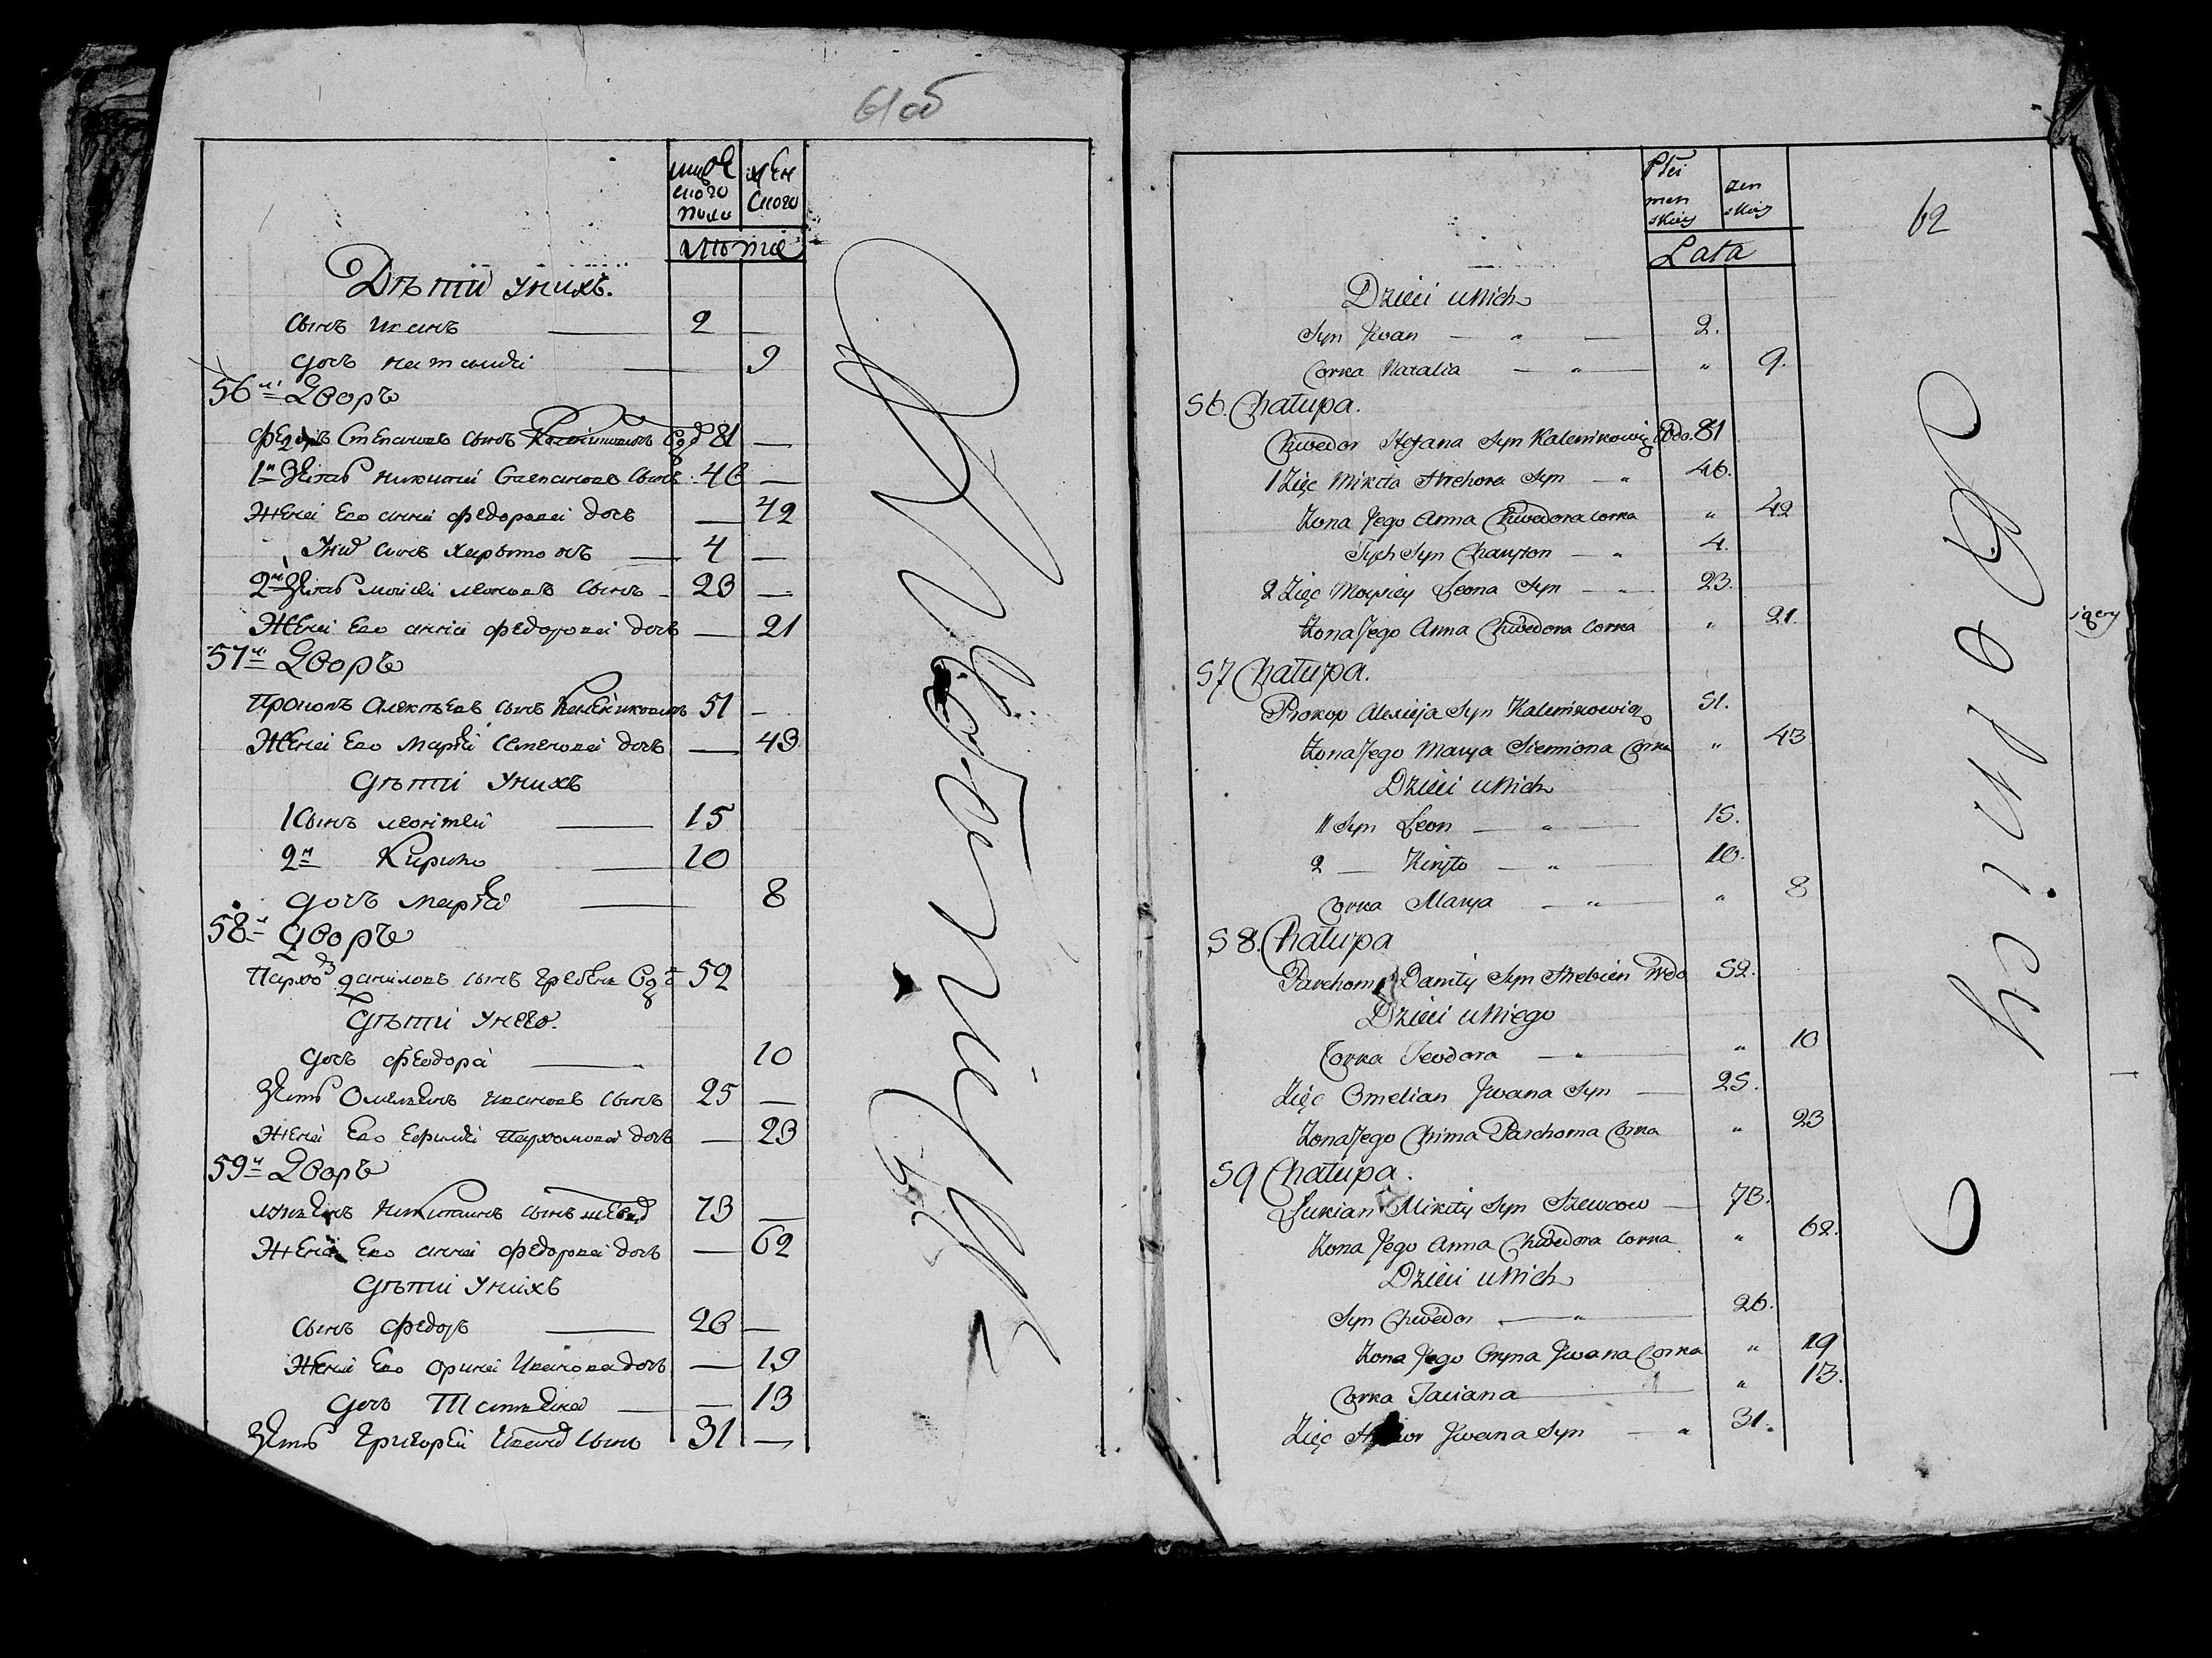 61об
мужеского пола
женского
Лета
Дѣти у нихъ.
сынъ иванъ 2 —
дочъ наталия 9
56й Дворъ
Федоръ Степановъ сынъ Каленикович вд 81 —
1й Зять никита сынъ 46 —
Жена Его анна федорова дочь — 42
У них сынъ харытонъ 4 —
2й Зять моисей леоновъ сынъ 23 —
Жена Его анна федорова дочь — 21
57й Дворъ
Прокопъ Алексѣевъ сынъ Калениковичъ 51 —
Жена Его Мария семенова дочь — 43
Дѣти у нихъ
1 Сынъ леонтей 15
2й Кирило 10
дочъ мария 8
58й Дворъ
Пархо данилов сынъ гребень вд 52
Дѣти у него.
дочъ феодора 10
Зять Омельянъ иванов сынъ 25 —
Жена Его Ефимия Пархомова дочъ — 23
59й Дворъ
лукьянъ никитинъ сынъ шевцов 73 —
Жена Его анна федорова дочъ — 62
Дѣти у нихъ
сынъ федоръ 26 —
Жена Его орина Иванова дочъ — 19
дочъ Татьяна — 13
Зять григорей иванов сынъ 31 —
62
Płci męskiey
żenskiey
Lata
Dzieci u Nich
Syn Jwan — " — 2.
Corka Natalia — " — " 9.
56. Chałupa.
Chwedor Stefana Syn Kalenikowicz Wdo. 81
1 Zięc Mikita Hrehora Syn — " 46.
Żona Jego Anna Chwedora corka " 42
Tych Syn Charyton — " 4.
2 Zięc Moysiey Leona Syn — " — 23.
Żona Jego Anna Chwedora Corka " 21.
57 Chałupa.
Prokop Alexieja Syn Kalenikowicz 51.
Żona Jego Marya Siemiona Corka " 43
Dzieci u Nich
1 Syn Leon — " — 15.
2 — Kiryło — " — 10.
Corka Marya — " — " 8
58. Chałupa
Parchom Daniły Syn Hrebień Wdo 52.
Dzieci u Niego
Corka Teodora — " — " 10
Zięc Omelian Jwana Syn — 25.
Żona Jego Chima Parchoma Corka " 23
59 Chałupa.
Łukian Mikity Syn Szewcow — 73.
Żona Jego Anna Chwedora corka " 62.
Dzieci u Nich
Syn Chwedor — " — 26.
Żona Jego Oryna Jwana Corka " 19
Corka Taciana — " 13.
Zięc Jwana Syn — " 31.